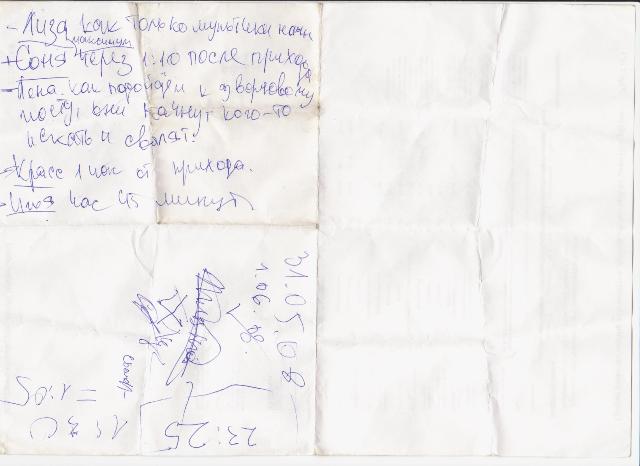 - Лиза как только мультики начн
максимум
+ Соня через 1:10 после прихода
- Лена. как подойдём к дворцовому
мосту, они начнут кого-то
искать и свалят.
- Красс 1 час от прихода.
- Илья час 45 минут
31.05.08
1.06.08.
23:25
= 1:05